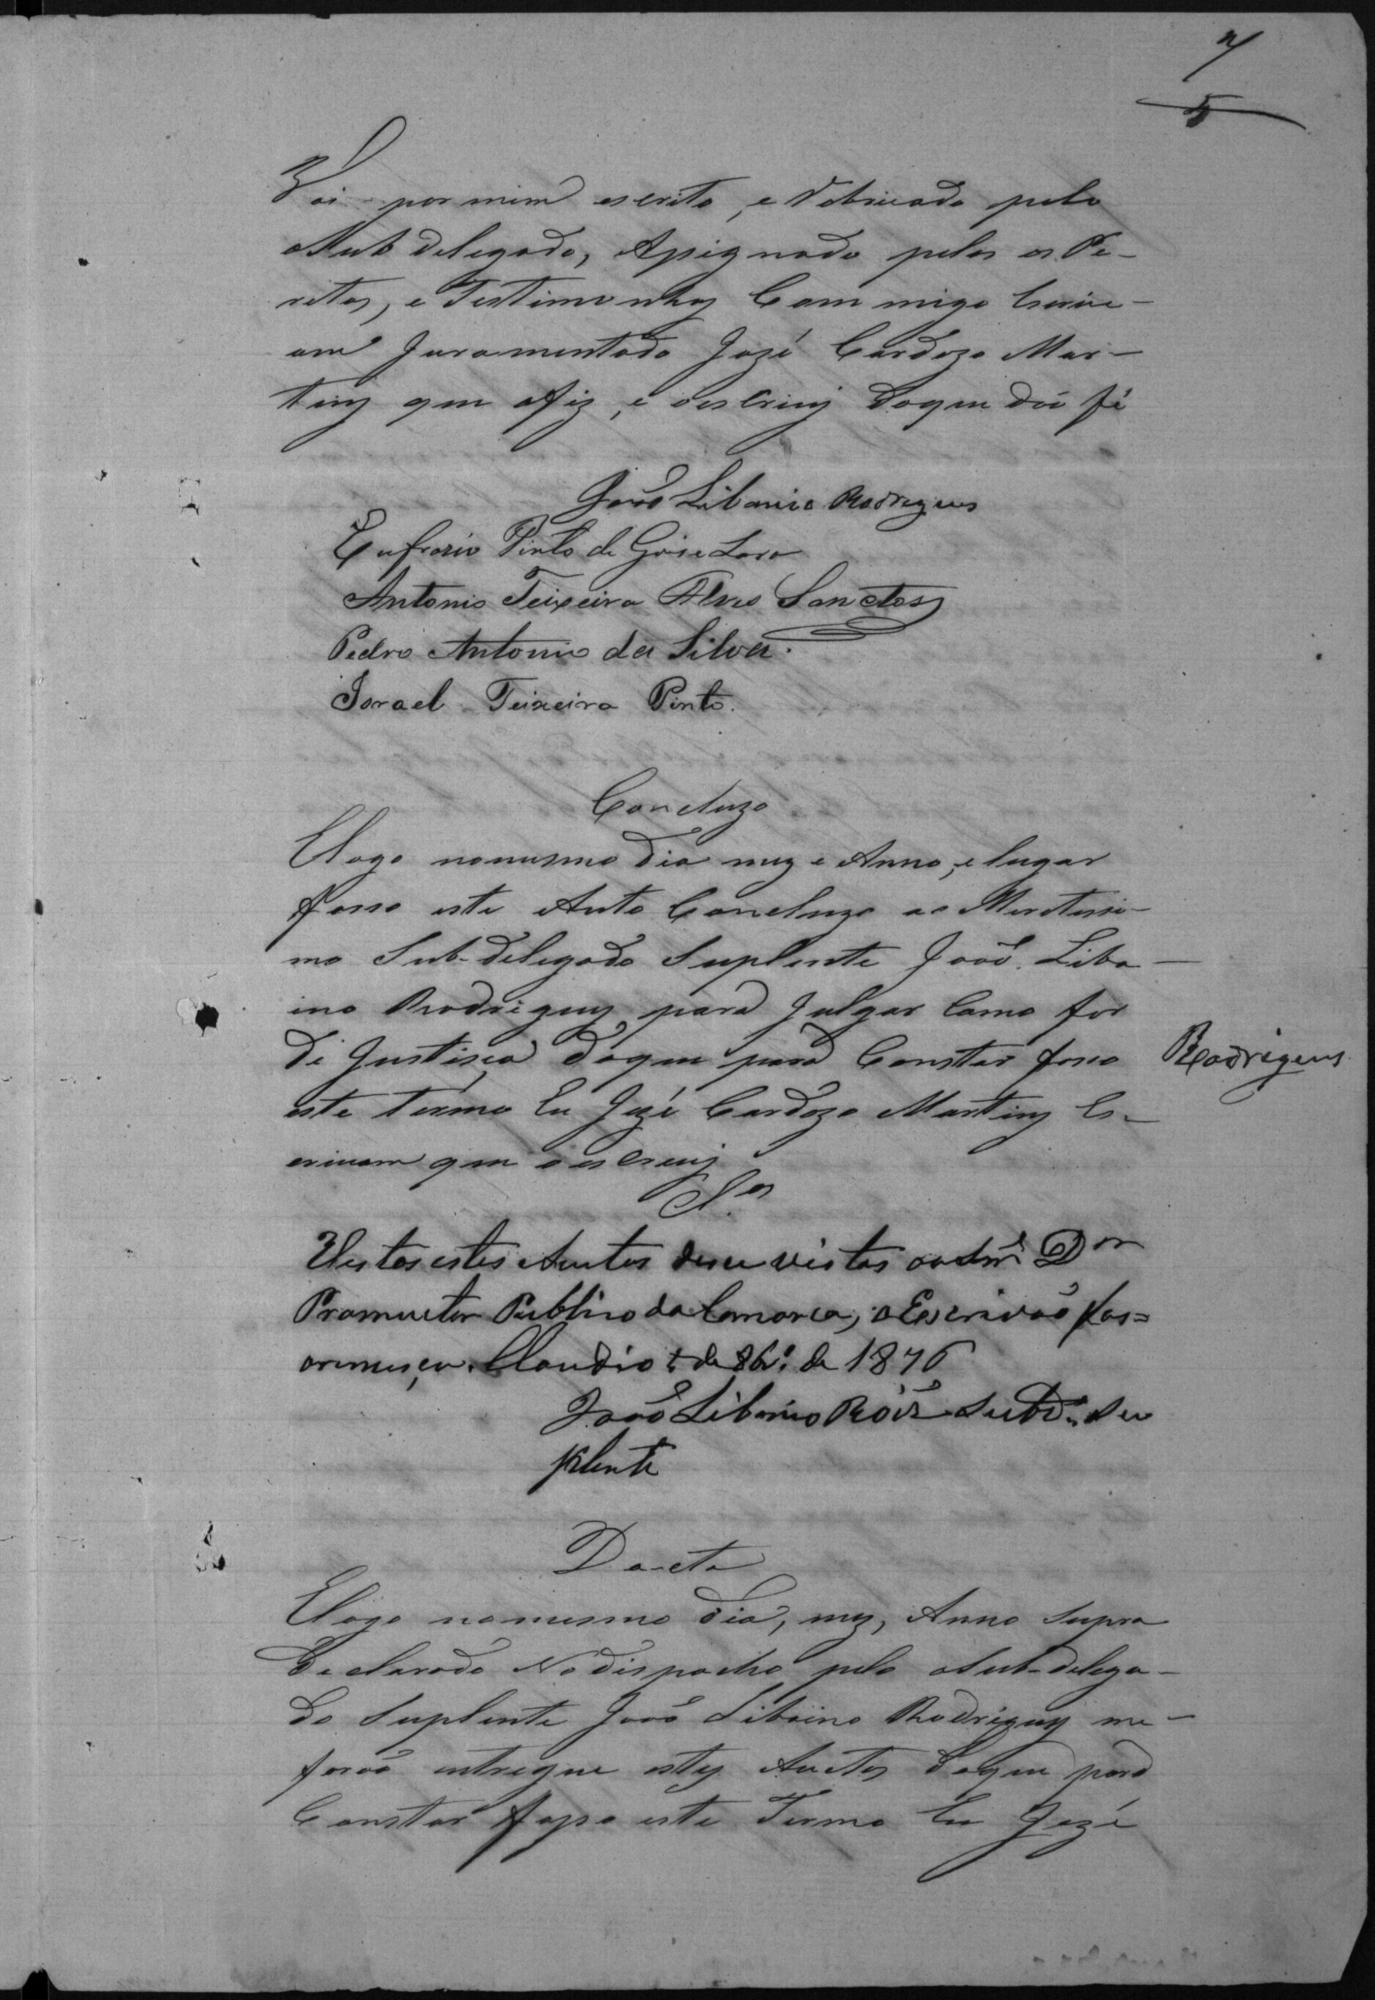 7
5
Foi por mim escrito, e Robricado pelo
Sub delegado, Assignado pelos os Pe-
ritos, e Testimonhas Commigo Escriv-
am Juramentado José Cardozo Mar-
tins que ofiz, e oescrevy doque dou fé
João Libanio Rodrigues
Eufrazio Pinto de Gois e Lara
Antonio Teixeira Alves Sanctos
Pedro Antonio da Silva.
Israel Teixeira Pinto.
Concluzo
Elogo nomesmo dia mez e Anno, e lugar
fasso este Auto Concluzo ao Meretissi-
mo Sub-delegado Suplente João Liba-
ino Rodrigues para Julgar Como for
de Justisça doque para Constar faso
este termo Eu José Cardozo Martins Es-
crivam que oescrevy
Rodrigues
Cl.os
Vistos estes Autos dese vistas ao Snr. Dor
Promuctor Publico da Comarca, o Escrivão fas=
aremeça. Claudio de 8br.o de 1876
João Libanio Roiz Subd.o Su
plente
Dacta
Elogo nomesmo dia, mez, Anno Supra
declarado No dispacho pelo Sub-delega-
do Suplente João Libaino Rodrigues me-
forão intregue estes Auctos doque para
Constar faço este Termo Eu José